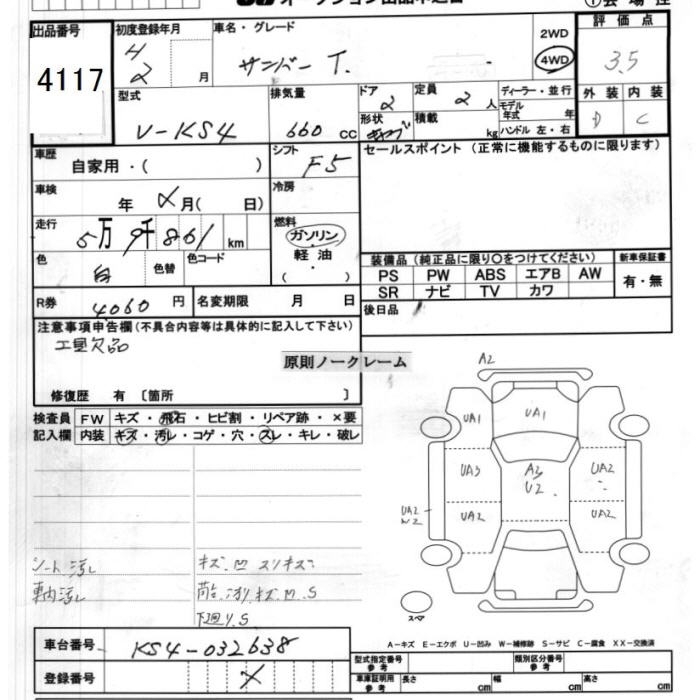 出品番号
4117
初度登録年月
4
2 月
車名・グレード
サンバー T.
2WD
4WD
評価点
3.5
型式
V-KS4
排気量
660 cc
ドア
2
定員
2 人
形状
積載
kg
ディーラー・並行
モデル年式 年
ハンドル 左・右
外装 内装
D C
車歴
自家用・( )
シフト
F5
セールスポイント (正常に機能するものに限ります)
車検
年 月( 日)
冷房
走行
5万 9千 861 km
燃料
ガソリン
軽油
( )
色
白
色替
色コード
装備品 (純正品に限り○をつけてください)
新車保証書
PS PW ABS エアB AW
SR ナビ TV カワ
有・無
R券
4060 円
名変期限 月 日
後日品
注意事項申告欄 (不具合内容等は具体的に記入して下さい)
工具欠品
原則ノークレーム
修復歴 有 〔箇所 〕
検査員
記入欄
FW キズ・飛石・ヒビ割・リペア跡・×要
内装 キズ・汚レ・コゲ・穴・スレ・キレ・破レ
A2
UA1
UA1
UA3
A3
U2
UA2
UA2
UA2
UA2
W2
スペア
シート汚レ
車内汚レ
キズ.凹 スリキズ
下廻り.S
A-キズ E-エクボ U-凹み W-補修跡 S-サビ C-腐食 XX-交換済
車台番号
KS4-032638
登録番号
型式指定番号
参考
類別区分番号
参考
車庫証明用
参考
長さ cm
幅 cm
高さ cm